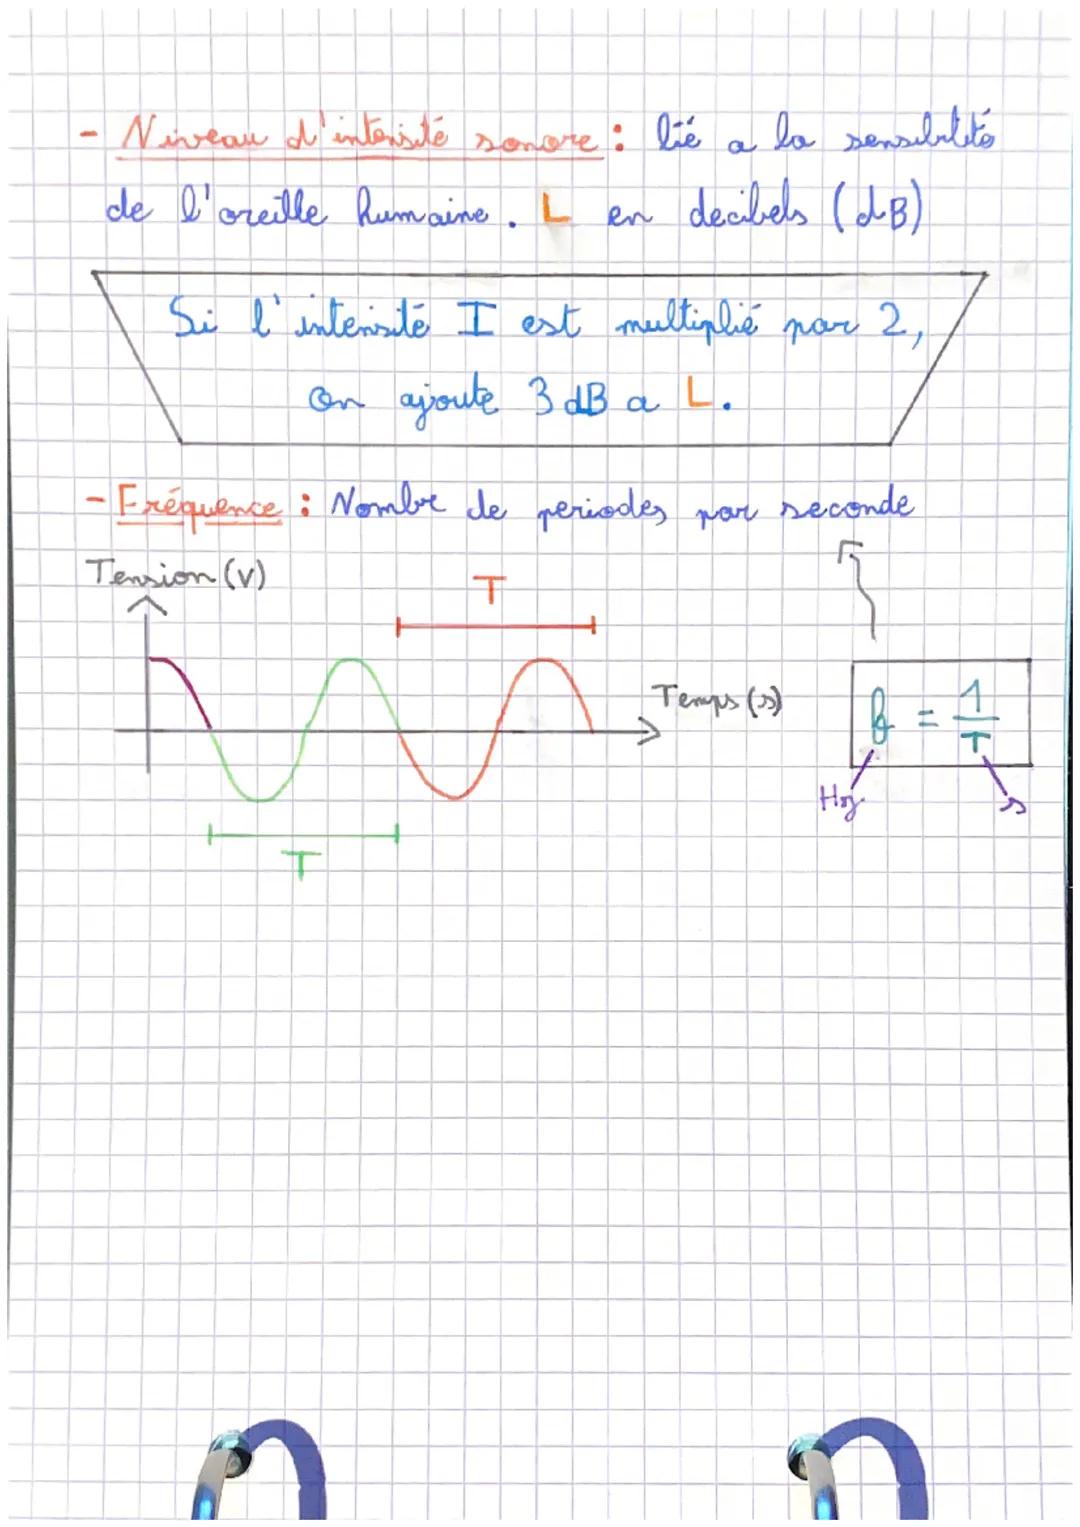 - Niveau d'intensité sonore : lié a la sensibilité
de l'oreille humaine. L en decibels (dB)
Si l'intensité I est multiplié par 2,
on ajoute 3 dB a L.
- Fréquence : Nombre de periodes par seconde
Tension (V)
T
Temps (s)
f = 1/T
Hz
s
T